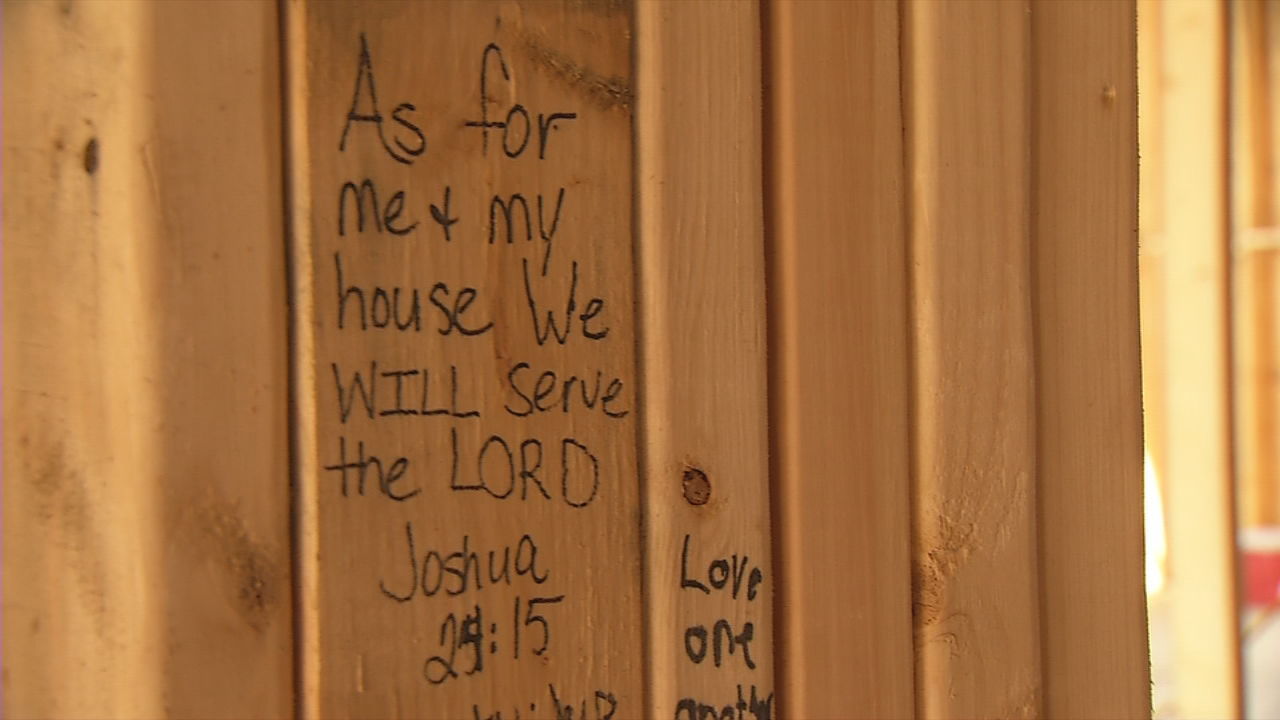 As for
me & my
house We
WILL serve
the LORD
Joshua
24:15
Love
one
another